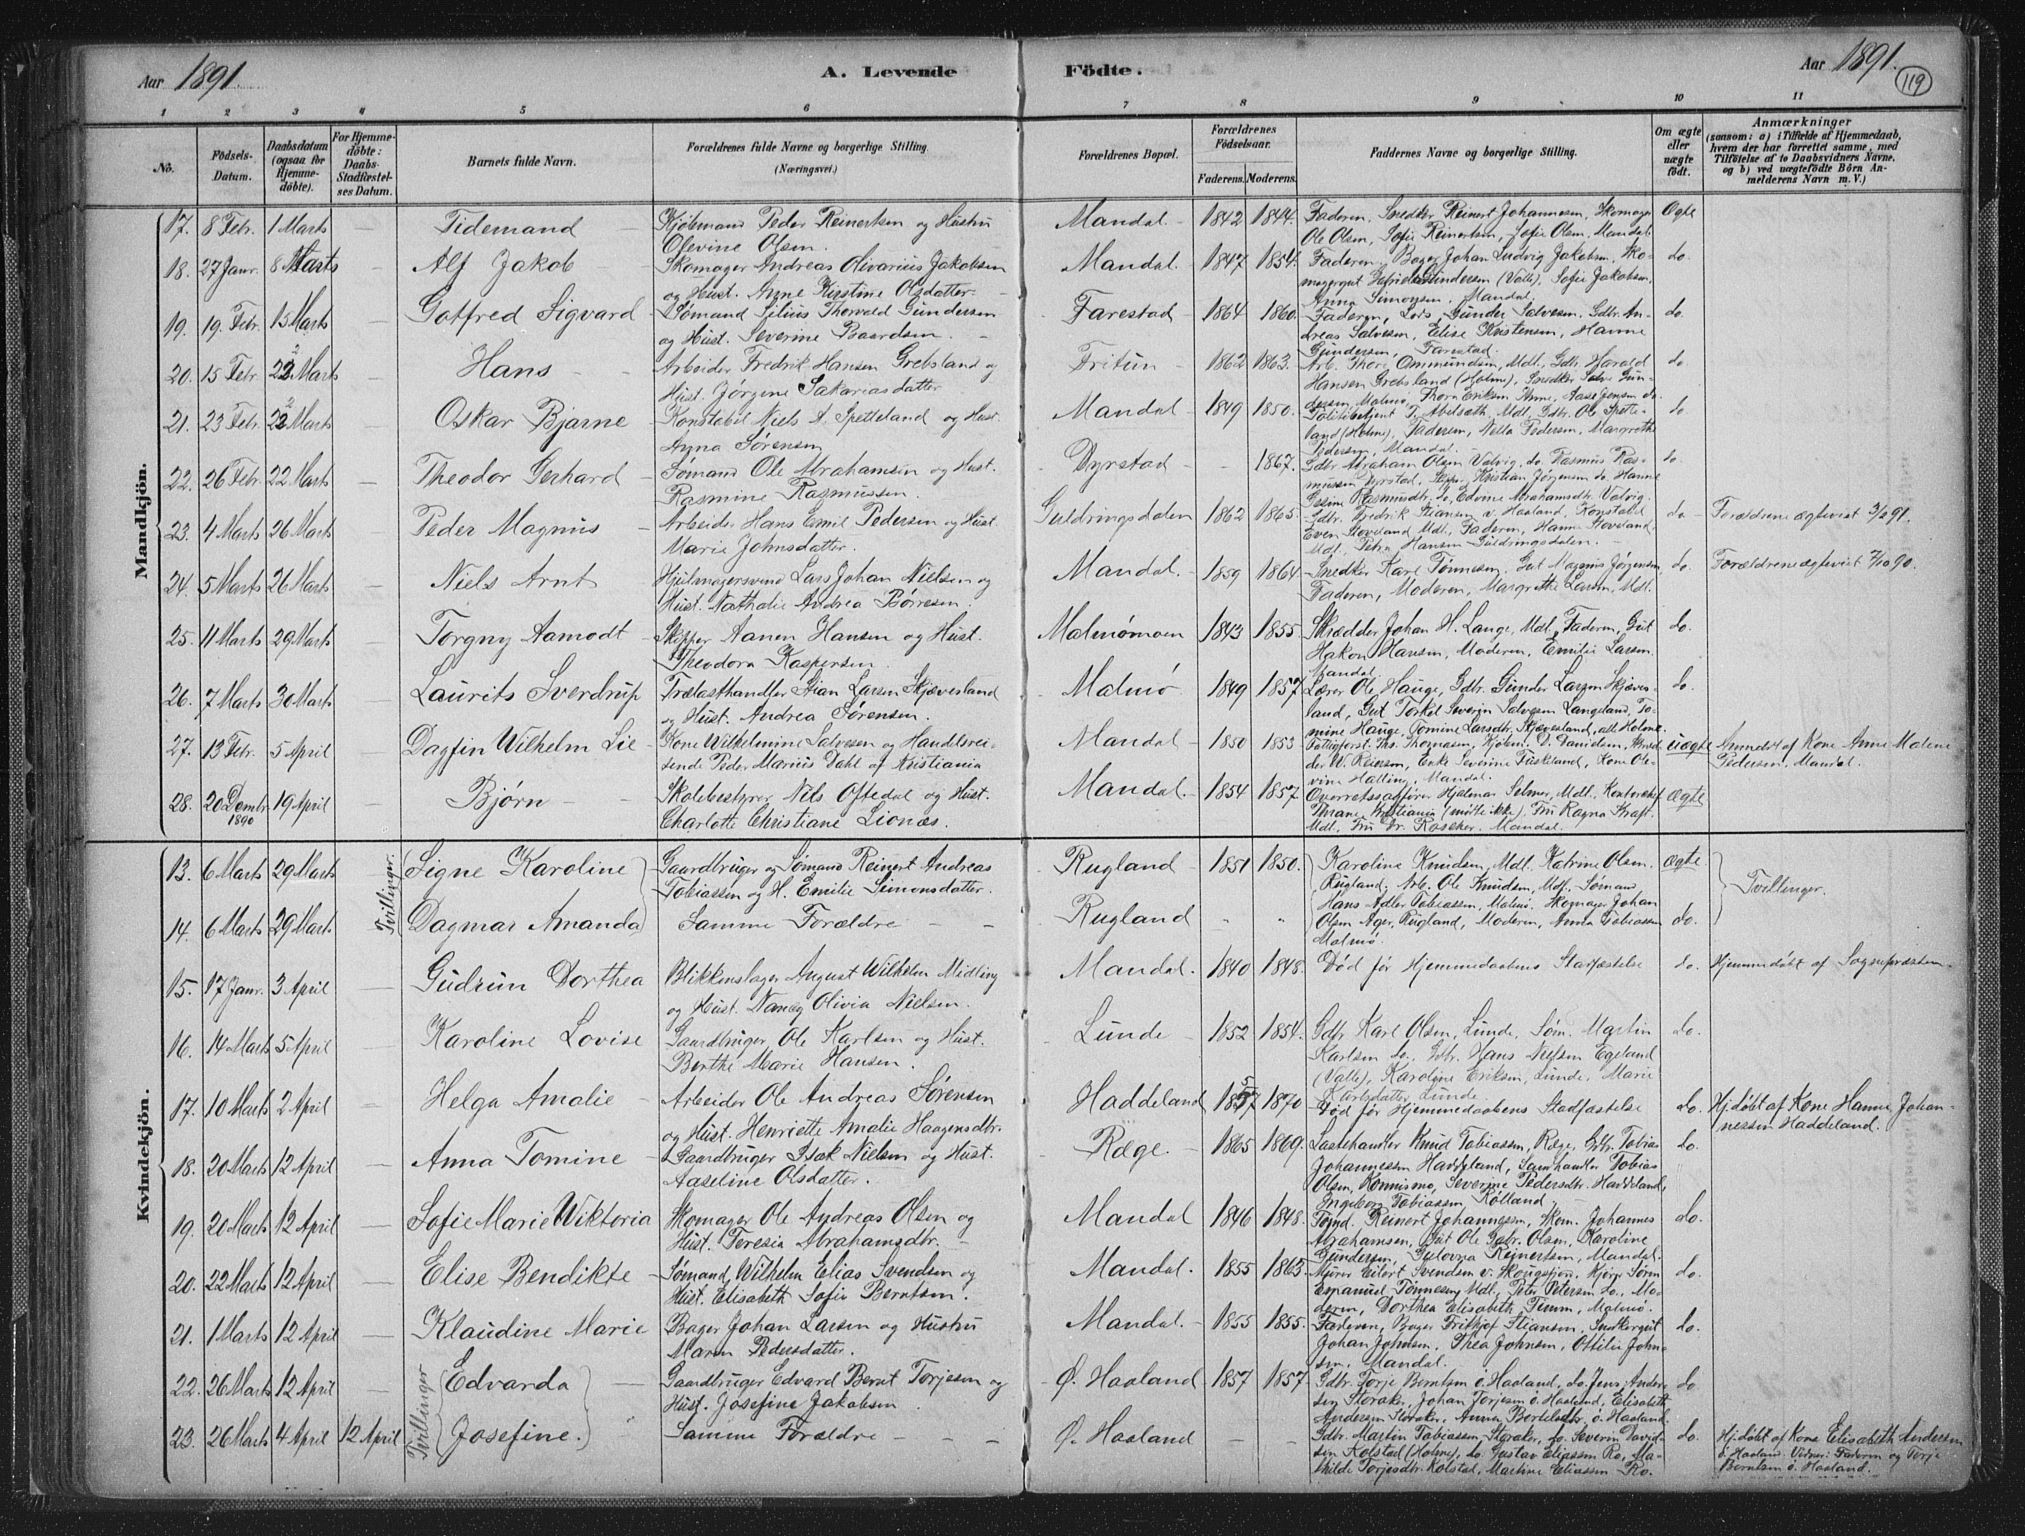 Aar 1891. A. Levende Födte. Aar 1891.
119
1 2 3 4 5 6 7 8 9 10 11
No. Födsels-Datum. Daabsdatum (ogsaa for Hjemmedöbte). For Hjemmedöbte: Daabs-Stadfæstelses Datum. Barnets fulde Navn. Forældrenes fulde Navne og borgerlige Stilling. (Næringsvei.) Forældrenes Bopæl. Forældrenes Födselsaar. Faderens. Moderens. Faddernes Navne og borgerlige Stilling. Om ægte eller uægte födt. Anmærkninger (saasom: a) i Tilfælde af Hjemmedaab, hvem der har forrettet samme, med Tilföielse af to Daabsvidners Navne, og b) ved uægtefödte Börn Anmelderens Navn m. V.)
Mandkjön.
17. 8 Febr. 1 Marts — Tidemand — Kjøbmand Peder Reinertsen og Hustru Olevine Olsen. Mandal 1842 1844. Faderen, Snedker Reinert Johannesen, Skomager Ole Olsen, Sofie Reinertsen, Sofie Olsen, Mandal. Ægte
18. 27 Janr. 8 Marts — Alf Jakob — Skomager Andreas Olivarius Jakobsen og Hust. Anne Kirstine Olsdatter. Mandal. 1847 1854. Faderen, Bager Johan Ludvig Jakobsen, Skomagergut Gundersen (Valle), Sofie Jakobsen, Anna Simonsen, Mandal. do.
19. 19. Febr. 15 Marts — Gotfred Sigvard — Sømand Julius Thorvald Gundersen og Hust. Severine Baardsen. Farestad 1864 1860. Faderen, Lods Gunder Salvesen, Gdbr. Andreas Salvesen, Elise Kristensen, Hanne Gundersen, Farestad. do.
20. 15 Febr. 22 Marts — Hans — Arbeider Fredrik Hansen Grebsland og Hust. Jørgine Sakariasdatter. Fritun 1862 1863. Arb. Thore Ommundsen, Mdl. Gdbr. Harald Hansen Grebsland (Holme), Snedker Salve Gundersen Malmø, Thora Eriksen do do
21. 23 Febr. 22 Marts — Oskar Bjarne — Konstabel Niels A. Spetteland og Hust. Anna Sørensen. Mandal 1849 1850. Politibetjent T. Abelseth, Mdl. Gdbr. Ole Spetteland (Holme), Faderen, Nella Pedersen, Margrethe Pedersen, Mandal. do
22. 26 Febr. 22 Marts — Theodor Gerhard — Sømand Ole Abrahamsen og Hust. Rasmine Rasmussen. Dyrstad — 1867. Gdbr. Abraham Olsen Valvig, do. Rasmus Rasmussen Dyrstad, Skipp. Kristian Jørgensen do. Hanne Gesine Rasmusdtr. do, Edvine Abrahamsdtr. Valvig. do.
23. 4 Marts 26 Marts — Peder Magnus — Arbeider Hans Emil Pedersen og Hust. Marie Johnsdatter. Guldringsdalen 1862 1865. Gdbr. Fredrik Stiansen v. Haaland, Konstabel Even Stoveland Mdl. Faderen, Hanne Stoveland Mdl. Petra Hansen Guldringsdalen. do — Forældrene ægteviet 3/2 91.
24. 5 Marts 26 Marts — Niels Arnt — Hjulmagersvend Lars Johan Nielsen og Hust. Nathalie Andrea Børresen. Mandal. 1859 1864. Snedker Karl Tønnesen, Gut Magnus Jørgensen, Faderen, Moderen, Margrethe Larsen, Mdl. do. Forældrene ægteviet 7/10 90.
25. 11 Marts 29 Marts — Torgny Aamodt — Skipper Aanen Hansen og Hust. Theodora Kaspersen. Malmømoen 1843 1855. Skrædder Johan H. Lange, Mdl. Faderen, Gut Hakon Hansen, Moderen, Emilie Larsen Mandal. do.
26. 7 Marts 30 Marts — Laurits Sverdrup — Trælasthandler Stian Larsen Skjævesland og Hust. Andrea Sørensen. Malmø 1849 1857. Lærer Ole Hauge, Gdbr. Gunder Larsen Skjævesland, Gut Torkel Severin Salvesen Langeland, Tomine Hauge, Tomine Larsdtr. Skjævesland, alle Holme. do.
27. 13 Febr. 5 April — Dagfin Wilhelm Lie — Kone Wilhelmine Salvesen og Handelsreisende Peder Marius Dahl af Kristiania Mandal 1850 1853 Fattigforst. Ths. Thomassen, Kjøbm. D. Danielsen, W. Reiersen, Enke Severine Fuskeland, Kone Olevine Hælling, Mandal. uægte Anmeldt af Kone Anne Malene Pedersen, Mandal.
28. 20 Decmbr. 1890 19 April — Bjørn — Skolebestyrer Niels Oftedal og Hust. Charlotte Christiane Lionæs. Mandal. 1854 1857. Overretssagfører Hjalmar Selmer, Mdl. Kontorchef Thrane Kristiania (mødte ikke), Fru Ragna Kraft Mdl. Fru Dr. Mandal. Ægte
Kvindekjön.
13. 6 Marts 29 Marts Tvillinger. Signe Karoline Gaardbruger og Sømand Reinert Andreas Tobiassen og H. Emilie Simonsdatter. Rugland 1851 1850. Karoline Knudsen, Mdl. Katrine Olsen, Rugland, Arb. Ole Knudsen, Mdl. Sømand Hans Adler Tobiassen, Malmø. Skomager Johan Olsen Ager, Rugland, Moderen, Anna Tobiassen Malmø. Ægte Tvillinger.
14. 6 Marts 29 Marts Dagmar Amanda Samme Forældre — Rugland " " do.
15. 17 Janr. 3 April — Gudrun Dorthea Blikkenslager August Wilhelm Midling og Hust. Nancy Olivia Nielsen. Mandal. 1840 1848. Død før Hjemmedaabens Stadfæstelse do. Hjemmedøbt af Sognepræsten.
16. 14 Marts 5 April — Karoline Lovise Gaardbruger Ole Karlsen og Hust. Berthe Marie Hansen. Lunde 1852 1854. Gdbr Karl Olsen, Lunde, Søm. Martin Karlsen do. Gdbr. Hans Nielsen Egeland (Valle), Karoline Eriksen, Lunde, Marie Karlsdatter Lunde. do.
17. 10 Marts 2 April — Helga Amalie — Arbeider Ole Andreas Sørensen og Hust. Henriette Amalie Haagensdtr. Haddeland 1857 1870 Død før Hjemmedaabens Stadfæstelse do. Hj.døbt af Kone Hanne Johannessen Haddeland.
18. 20 Marts 12 April — Anna Tomine — Gaardbruger Isak Nielsen og Hust. Aaseline Olsdatter. Ræge. 1865 1869. Lastehandler Knud Tobiassen, Ræge, Gdbr. Tobias Johannessen Haddeland, Tobias Olsen, Konnismo, Severine Pedersdtr. Haddeland, Ingeborg Tobiassen Rølland. do.
19. 20 Marts 12 April — Sofie Marie Wiktoria Skomager Ole Andreas Olsen og Hust. Teresia Abrahamsdtr. Mandal 1846 1848. Tømd. Reinert Johannesen, Skom. Johannes Abrahamsen, Gut Ole Gabr. Olsen, Karoline Gundersen, Gulovna Reinertsen, Mandal. do.
20. 22 Marts 12 April — Elise Bendikte Sømand Wilhelm Elias Svendsen og Hust. Elisabeth Sofie Berntsen. Mandal. 1855 1865. Murer Eilert Svendsen v. Skougsøjen, Kjørg. Søren Espanuel Tønnesen Mdl. Peter Petersen do., Moderen, Dorthea Elisabeth Timm, Malmø. do.
21. 1 Marts 12 April — Klaudine Marie Bager Johan Larsen og Hustru Maren Pedersdatter. Mandal. 1855 1855. Faderen, Bager Fridtjof Stiansen, Snedkergut Johan Johnsen, Thea Johnsen, Ottilie Johnsen, Mandal. do.
22. 26 Marts 12 April Tvillinger Edvarda — Gaardbruger Edvard Bernt Torjesen og Hust. Josefine Jakobsen Ø. Haaland 1857 1857 Gdbr. Torje Berntsen ö. Haaland, do. Jens Andersen Storaker, Johan Torjesen ö. Haaland, Elisabeth Andersen Storaker, Anna Bertelsdtr. ö. Haaland. do
23. 26 Marts 4 April 12 April Josefine. " Samme Forældre — Ø. Haaland — — Gdbr. Martin Tobiassen, Storaker, do. Severin Davidsen Kolstal (Holme), do. Gustav Eliassen Ro, Mathilde Torjesdtr. Kolstal, Martine Eliassen Ro. do. Hj.døbt af Kone Elisabeth Andersen ö. Haaland. Vidner: Faderen og Torje Berntsen ö. Haaland.